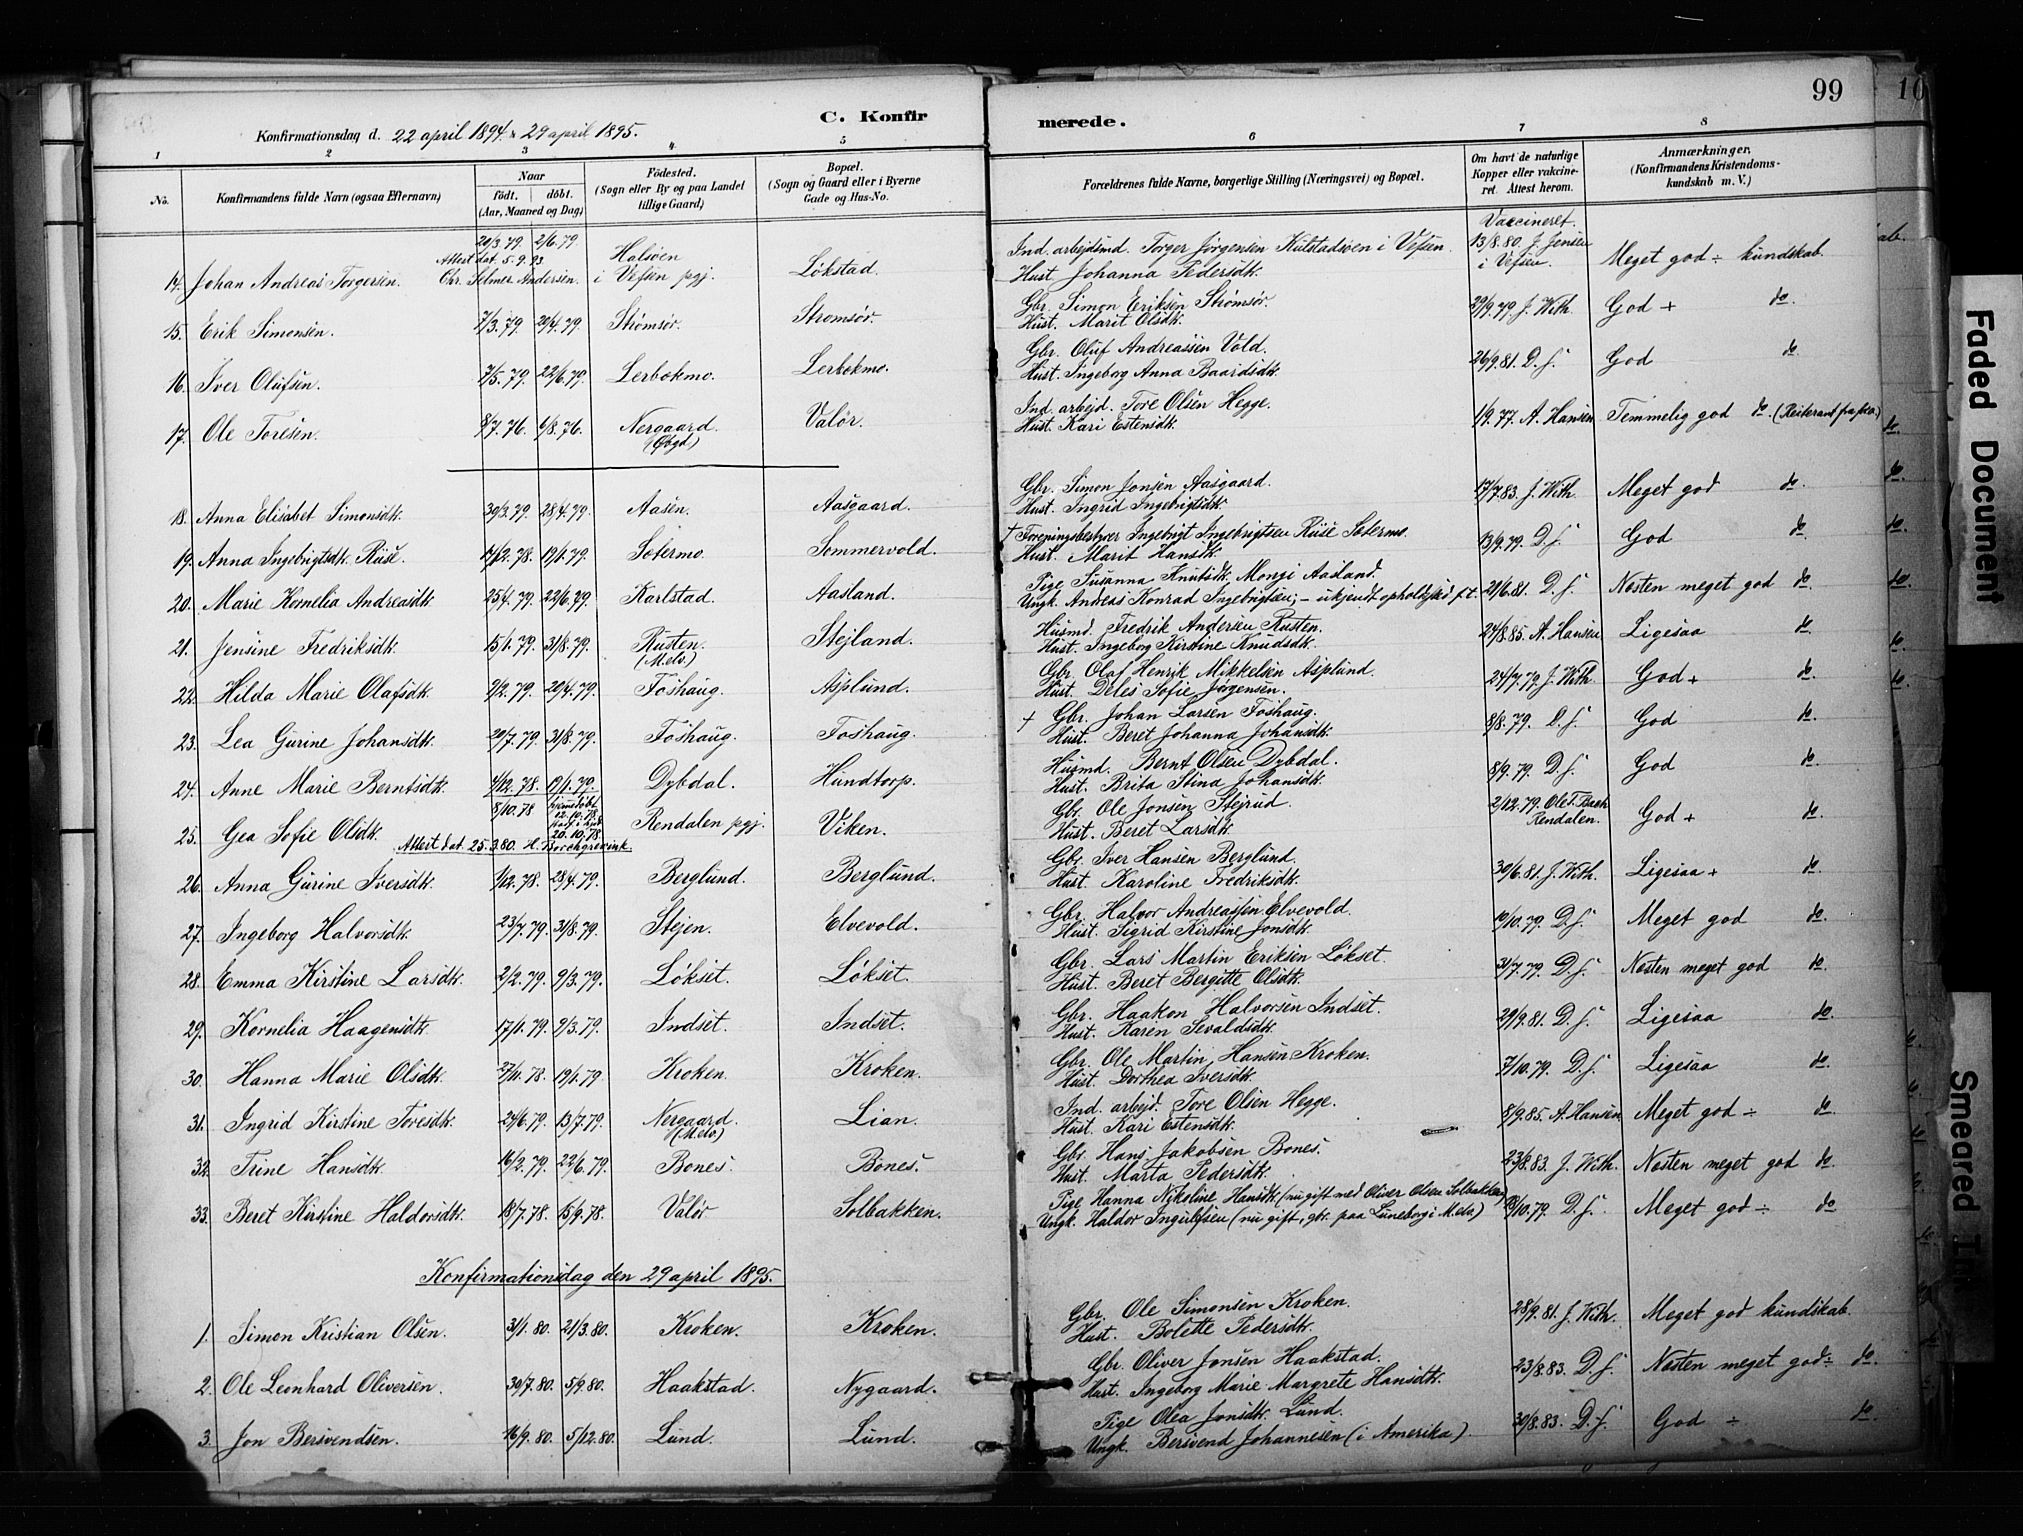 99
10
C. Konfirmerede.
Konfirmationsdag d. 22 april 1894 & 29 april 1895.
1 2 3 4 5 6 7 8
No.
Konfirmandens fulde Navn (ogsaa Efternavn)
Naar
Født. døbt.
(Aar, Maaned og Dag)
Fødested.
(Sogn eller By og paa Landet
tillige Gaard)
Bopæl.
(Sogn og Gaard eller i Byerne
Gade og Hus-No.
Forældrenes fulde Navne, borgerlige Stilling (Næringsvei) og Bopæl.
Om havt de naturlige
Kopper eller vaccine-
ret. Attest herom.
Anmærkninger.
(Konfirmandens Kristendoms-
kundskab m. V.)
Vaccineret.
14. Johan Andreas Torgersen. 20/3.79. 2/6.79. Attest dat. 5.9.93. Chr. Selmer Andersen. Halsøen i Vefsen pgj. Løkstad. Ind. arbejdsmd. Torger Jørgensen Kulstadsøen i Vefsen. 13/8.80. J. Jensen i Vefsen. Meget god ÷ kundskab.
Hust Johanna Pedersdtr.
15. Erik Simonsen. 7/3.79. 20/4.79. Strømsør. Strømsør. Gbr. Simon Eriksen Strømsør. 29/9.79. J. With. God + do.
Hust. Marit Olsdtr.
16. Iver Olufsen. 7/5.79. 22/6.79. Lerbekmo. Lerbekmo. Gbr. Oluf Andreassen Vold. 26/9.81. D.s. God do
Hust. Ingeborg Anna Baardsdtr.
17. Ole Toresen. 8/7.76. 6/8.76. Nergaard. (Øbgd) Valør. Ind. arbejd. Tore Olsen Hegge. 1/9.77. A. Hansen Temmelig god do.
Hust. Kari Estensdtr.
18. Anna Elisabet Simonsdtr. 30/3.79. 28/4.79. Aasen. Aasgaard. Gbr. Simon Jonsen Aasgaard. 17/7.83. J. With. Meget god do.
Hust. Ingrid Ingebrigtsdtr.
19. Anna Ingebrigtsdtr. Riise. 14/12.78. 19/1.79. Sætermo. Sommervold. † Foreningsbestyrer Ingebrigt Ingebrigtsen Riise Sætermo. 13/9.79. D.s. God do
Hust. Marit Hansdtr.
20. Marie Kornelia Andreasdtr. 25/4.79. 22/6.79. Karlstad. Aasland. Pige Susanna Knutsdtr. Mongi Aasland. 21/6.81. D.s. Næsten meget god do.
Ungk. Andreas Konrad Ingebrigtsen; - ukjendt opholdssted f.t.
21. Jensine Fredriksdtr. 15/1.79. 31/8.79. Rusten. (M.elv.) Stejland. Husmd. Fredrik Andersen Rusten. 24/8.85. A. Hansen Ligesaa do
Hust. Ingeborg Kirstine Knudsdtr.
22. Hilda Marie Olafsdtr. 2/2.79. 20/4.79. Foshaug. Asplund. Gbr. Olaf Henrik Mikkelsen Asplund. 24/7.79. J. With. God + do.
Hust. Deles Sofie Jørgensen.
23. Lea Gurine Johansdtr. 20/7.79. 31/8.79. Foshaug. Foshaug. † Gbr. Johan Larsen Foshaug. 8/8.79. D.s. God do.
Hust. Beret Johanna Johansdtr.
24. Anne Marie Berntsdtr. 4/12.78. 19/1.79. Dybdal. Hundtorp. Husmd. Bernt Olsen Dybdal. 8/9.79. D.s. God do
Hust. Brita Stina Johansdtr.
25. Gea Sofie Olsdtr. 8/10.78. hjemmedøbt 12.10.78. 20.10.78. Attest dat. 25.3.80. H. Borchgrevink. Rendalen pgj. Viken. Gbr. Ole Jonsen Stejrud. 2/12.79. Ole T. Bach Rendalen. God + do
Hust. Beret Larsdtr.
26. Anna Gurine Iversdtr. 1/12.78. 28/4.79. Berglund. Berglund. Gbr. Iver Hansen Berglund. 30/6.81. J. With. Ligesaa + do
Hust. Karoline Fredriksdtr.
27. Ingeborg Halvorsdtr. 23/7.79. 31/8.79. Stejen. Elvevold. Gbr. Halvor Andreassen Elvevold. 10/10.79. D.s. Meget god do.
Hust. Sigrid Kirstine Jonsdtr.
28. Emma Kirstine Larsdtr. 2/2.79. 9/3.79. Løkset. Løkset. Gbr. Lars Martin Eriksen Løkset. 31/7.79. D.s. Næsten meget god do.
Hust. Beret Bergitte Olsdtr.
29. Kornelia Haagensdtr. 17/1.79. 9/3.79. Indset. Indset. Gbr. Haakon Halvorsen Indset. 29/9.81. D.s. Ligesaa do.
Hust. Karen Sevaldsdtr.
30. Hanna Marie Olsdtr. 27/11.78. 19/1.79 Kroken. Kroken. Gbr. Ole Martin Hansen Kroken. 7/10.79. D.s. Ligesaa do.
Hust. Dorthea Iversdtr.
31. Ingrid Kirstine Toresdtr. 24/6.79. 13/7.79. Nergaard. (M.elv.) Lian. Ind. arbejd. Tore Olsen Hegge. 8/9.85. A. Hansen. Meget god ÷ do
Hust. Kari Estensdtr.
32. Trine Hansdtr. 16/2.79. 22/6.79. Bones. Bones. Gbr. Hans Jakobsen Bones. 23/8.83. J. With. Næsten meget god do.
Hust. Marta Pedersdtr.
33. Beret Kirstine Haldorsdtr. 18/7.78. 15/9.78. Valør Solbakken. Pige Hanna Nikoline Hansdtr. (nu gift med Oliver Olsen Solbakken) 13/10.79. D.s. Meget god ÷ do
Ungk. Haldor Ingulfsen (nu gift, gbr. paa Luneborg i M.elv.)
Konfirmationsdag den 29 april 1895.
1. Simon Kristian Olsen. 31/1.80. 21/3.80. Kroken. Kroken. Gbr. Ole Simonsen Kroken. 28/9.81. J. With. Meget god kundskab.
Hust. Bolette Pedersdtr.
2. Ole Leonhard Oliversen. 30/7.80. 5/9.80. Haakstad. Nygaard. Gbr. Oliver Jonsen Haakstad. 23/8.83. D.s. Næsten meget god ÷ do.
Hust. Ingeborg Marie Margrete Hansdtr.
3. Jon Bersvendsen. 16/9.80. 5/12.80. Lund. Lund. Pige Olea Jonsdtr. Lund. 30/8.83. D.s. God ÷ do
Ungk. Bersvend Johannesen (i Amerika).
Faded Document
Smeared Ink